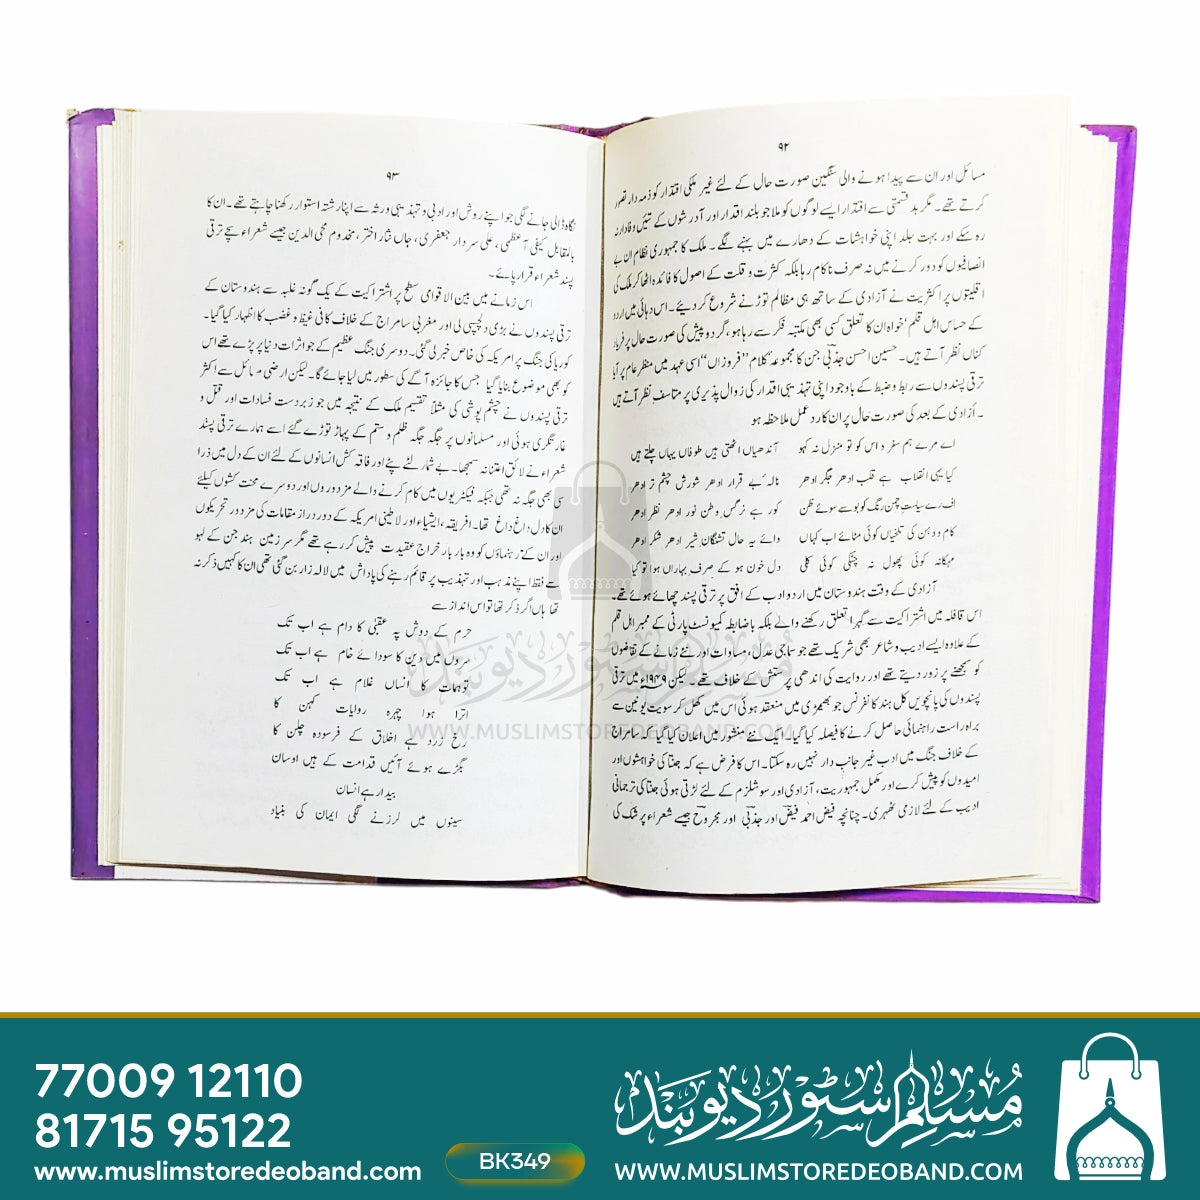 ۹۲
مسائل اور ان سے پیدا ہونے والی سنگین صورت حال کے لئے غیر ملکی اقتدار کو ذمہ دار تصور
کرتے تھے۔ مگر بد قسمتی سے اقتدار ایسے لوگوں کو ملا جو بلند اقدار اور آدرشوں کے تئیں وفادار نہ
رہ سکے اور بہت جلد اپنی خواہشات کے دھارے میں بہنے لگے۔ ملک کا جمہوری نظام ان بے
انصافیوں کو دور کرنے میں نہ صرف ناکام رہا بلکہ کثرت و قلت کے اصول کا فائدہ اٹھا کر ملک کی
اقلیتوں پر اکثریت نے آزادی کے ساتھ ہی مظالم توڑنے شروع کر دیئے۔ اس دہائی میں اردو
کے حساس اہل قلم، خواہ ان کا تعلق کسی بھی مکتبہ فکر سے رہا ہو، گرد و پیش کی صورت حال پر فریاد
کناں نظر آتے ہیں۔ حسین احسن جذبی جن کا مجموعہ کلام ’’فروزاں‘‘ اسی عہد میں منظر عام پر آیا
ترقی پسندوں سے ربط و ضبط کے باوجود اپنی تہذیبی اقدار کی زوال پذیری پر متاسف نظر آتے ہیں
۔ آزادی کے بعد کی صورت حال پر ان کا رد عمل ملاحظہ ہو
اے مرے ہم سفر و اس کو تو منزل نہ کہو آندھیاں اٹھتی ہیں طوفاں یہاں چلتے ہیں
کیا یہی انقلاب ہے قلب ادھر جگر ادھر نالہء بے قرار ادھر شورش چشم تر ادھر
اف رے سیاستِ چمن رنگ کو بو سے سوئے ظن کور ہے نرگس وطن نور ادھر نظر ادھر
کام و دہن کی تلخیاں کوئی منائے اب کہاں وائے بہ حال تشنگان شیر ادھر شکر ادھر
مہکا نہ کوئی پھول نہ چٹکی کوئی کلی دل خون ہو کے صرف بہاراں ہوا تو کیا
آزادی کے وقت ہندوستان میں اردو ادب کے افق پر ترقی پسند چھائے ہوئے تھے۔
اس قافلہ میں اشتراکیت سے گہرا تعلق رکھنے والے بلکہ باضابطہ کمیونسٹ پارٹی کے ممبر اہل قلم
کے علاوہ ایسے ادیب و شاعر بھی شریک تھے جو سماجی عدل، مساوات اور نئے زمانے کے تقاضوں
کو سمجھنے پر زور دیتے تھے اور روایت کی اندھی پرستش کے خلاف تھے۔ لیکن ۱۹۴۹ء میں ترقی
پسندوں کی پانچویں کل ہند کانفرنس جو بھیمڑی میں منعقد ہوئی اس میں کھل کر سویت یونین سے
براہ راست راہنمائی حاصل کرنے کا فیصلہ کیا گیا۔ ایک نئے منشور میں اعلان کیا گیا کہ سامراج
کے خلاف جنگ میں ادب غیر جانب دار نہیں رہ سکتا۔ اس کا فرض ہے کہ جنتا کی خواہشوں اور
امیدوں کو پیش کرے اور مکمل جمہوریت، آزادی اور سوشلزم کے لئے لڑتی ہوئی جنتا کی ترجمانی
ادیب کے لئے لازمی ٹھہری۔ چنانچہ فیض احمد فیض اور جذبی اور مجروح جیسے شعراء پر شک کی
۹۳
نگاہ ڈالی جانے لگی جو اپنے روش اور ادبی و تہذیبی ورثہ سے اپنا رشتہ استوار رکھنا چاہتے تھے۔ ان کا
بالمقابل کیفی آعظمی، علی سردار جعفری، جاں نثار اختر، مخدوم محی الدین جیسے شعراء سچے ترقی
پسند شعراء قرار پائے۔
اس زمانے میں بین الاقوامی سطح پر اشتراکیت کے یک گونہ غلبہ سے ہندوستان کے
ترقی پسندوں نے بڑی دلچسپی لی اور مغربی سامراج کے خلاف کافی غیظ و غضب کا اظہار کیا گیا۔
کوریا کی جنگ پر امریکہ کی خاص خبر لی گئی۔ دوسری جنگ عظیم کے جو اثرات دنیا پر پڑے تھے اس
کو بھی موضوع بنایا گیا جس کا جائزہ آگے کی سطور میں لیا جائے گا۔ لیکن ارضی مسائل سے اکثر
ترقی پسندوں نے چشم پوشی کی مثلاً تقسیم ملک کے نتیجہ میں جو زبردست فسادات اور قتل و
غارتگری ہوئی اور مسلمانوں پر جگہ جگہ ظلم و ستم کے پہاڑ توڑے گئے اسے ہمارے ترقی پسند
شعراء نے لائق اعتنا نہ سمجھا۔ بے شمار لٹے پٹے اور فاقہ کش انسانوں کے لئے ان کے دل میں ذرا
سی بھی جگہ نہ تھی جبکہ فیکٹریوں میں کام کرنے والے مزدوروں اور دوسرے محنت کشوں کیلئے
ان کا دل داغ داغ تھا۔ افریقہ، ایشیاء اور لاطینی امریکہ کے دور دراز مقامات کی مزدور تحریکوں
اور ان کے رہنماؤں کو وہ بار بار خراج عقیدت پیش کر رہے تھے مگر سرزمین ہند جن کے لہو
سے فقط اپنے مذہب اور تہذیب پر قائم رہنے کی پاداش میں لالہ زار بن گئی تھی ان کا کہیں ذکر نہ
تھا ہاں اگر ذکر تھا تو اس انداز سے
حرم کے دوش پہ عقبیٰ کا دام ہے اب تک
سروں میں دین کا سودائے خام ہے اب تک
توہمات کا انساں غلام ہے اب تک
اترا ہوا چہرہ روایات کہن کا
رخ زرد ہے اخلاق کے فرسودہ چلن کا
بگڑے ہوئے آئیں قدامت کے ہیں اوسان
بیدار ہے انسان
سینوں میں لرزنے لگی ایمان کی بنیاد
مسلم سٹور دیوبند
WWW.MUSLIMSTOREDEOBAND.COM
77009 12110
81715 95122
www.muslimstoredeoband.com
BK349
مسلم سٹور دیوبند
WWW.MUSLIMSTOREDEOBAND.COM